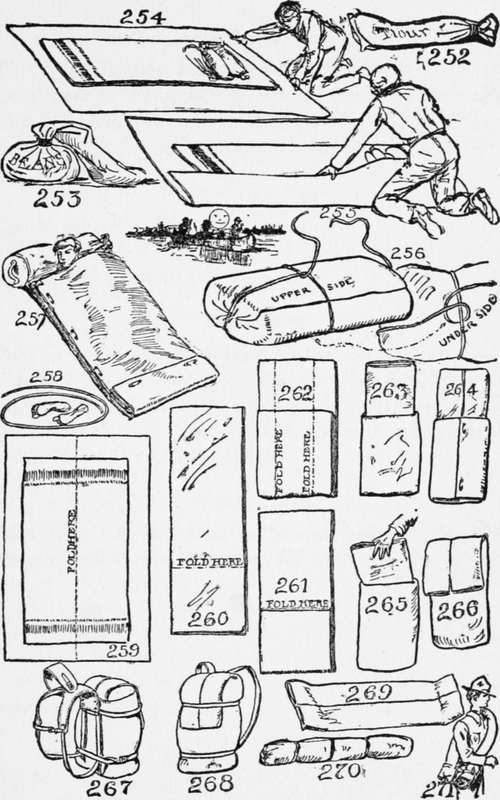 254
Flour
252
BEANS
253
255
256
UPPER SIDE
UNDER SIDE
257
258
262
263
264
FOLD HERE
FOLD HERE
FOLD HERE
259
FOLD HERE
260
261
FOLD HERE
265
266
267
268
269
270
271